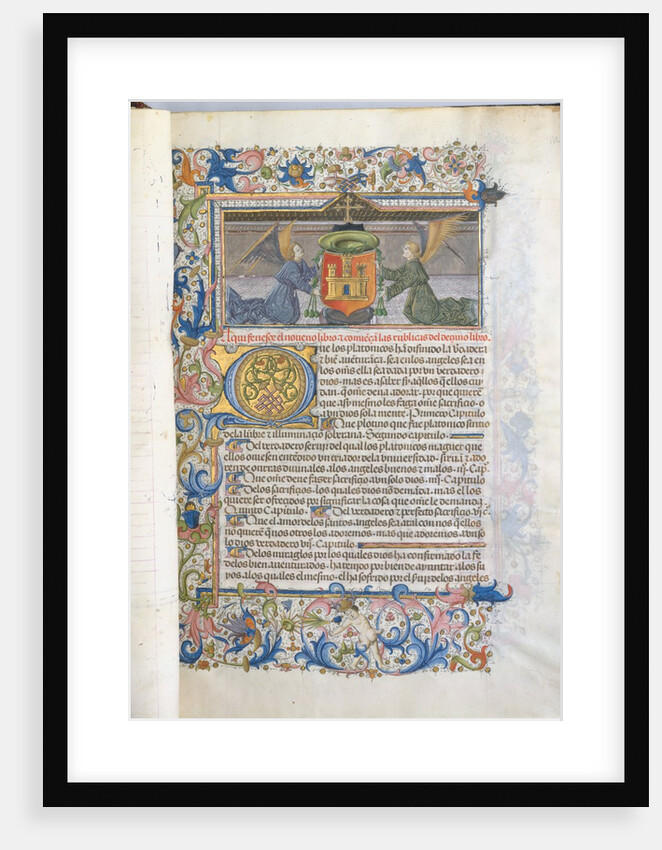 Aqui feneſce el noueno libro ⁊ comiẽça las rublicas del deʒimo libro.
Que los platonicos hã difinido la verdadera
⁊ biẽ auẽturãça. sea en los ãngeles sea en
los oms̃ ella sea dada por vn verdadero
dios· mas es a saber si aq̃llos que ellos cui
dan· q̃ om̃e deua adorar· por que quierẽ
que asi mesmo les faga om̃e sacrificio· o
a vn dios sola mente· Primero Capitulo
Que plotino que fue platonico sintio
de la lũbre ⁊ illuminaciõ soberana· Segundo capitulo·
Del verdadero seruiʒ del qual los platonicos maguer que
ellos ouiesen entẽdido vn criador de la vniuersidad· siruã ⁊ ado
ren de onrras diuinales· a los angeles buenos ⁊ malos· iijº Capº
Que om̃e deue faʒer sacrificio a vn solo dios· iiijº Capº
De los sacrificios· los quales dios nõ demãda· mas el los
quiere ser ofrecidos por significar la cosa que om̃e le demanda·
Quinto Capitulo· Del verdadero ⁊ perfecto sacrificio· vjº cº
Que el amor de los santos angeles sea atal con nos q̃ ellos
no quierẽ q̃ nos otros los adoremos· mas que adoremos a vn so
lo dios verdadero vijº Capitulo
De los miraglos por los quales dios ha confirmado la fe
de los bien auenturados· ha tenpo por bien de ayuntar· a los su
yos a los quales el mesmo· el ha sofrido por el de los angeles